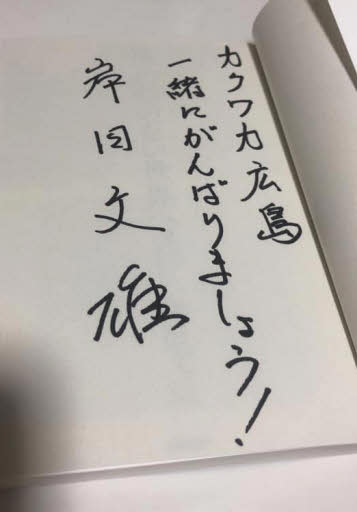 カクワカ広島
一緒にがんばりましょう!
岸田文雄